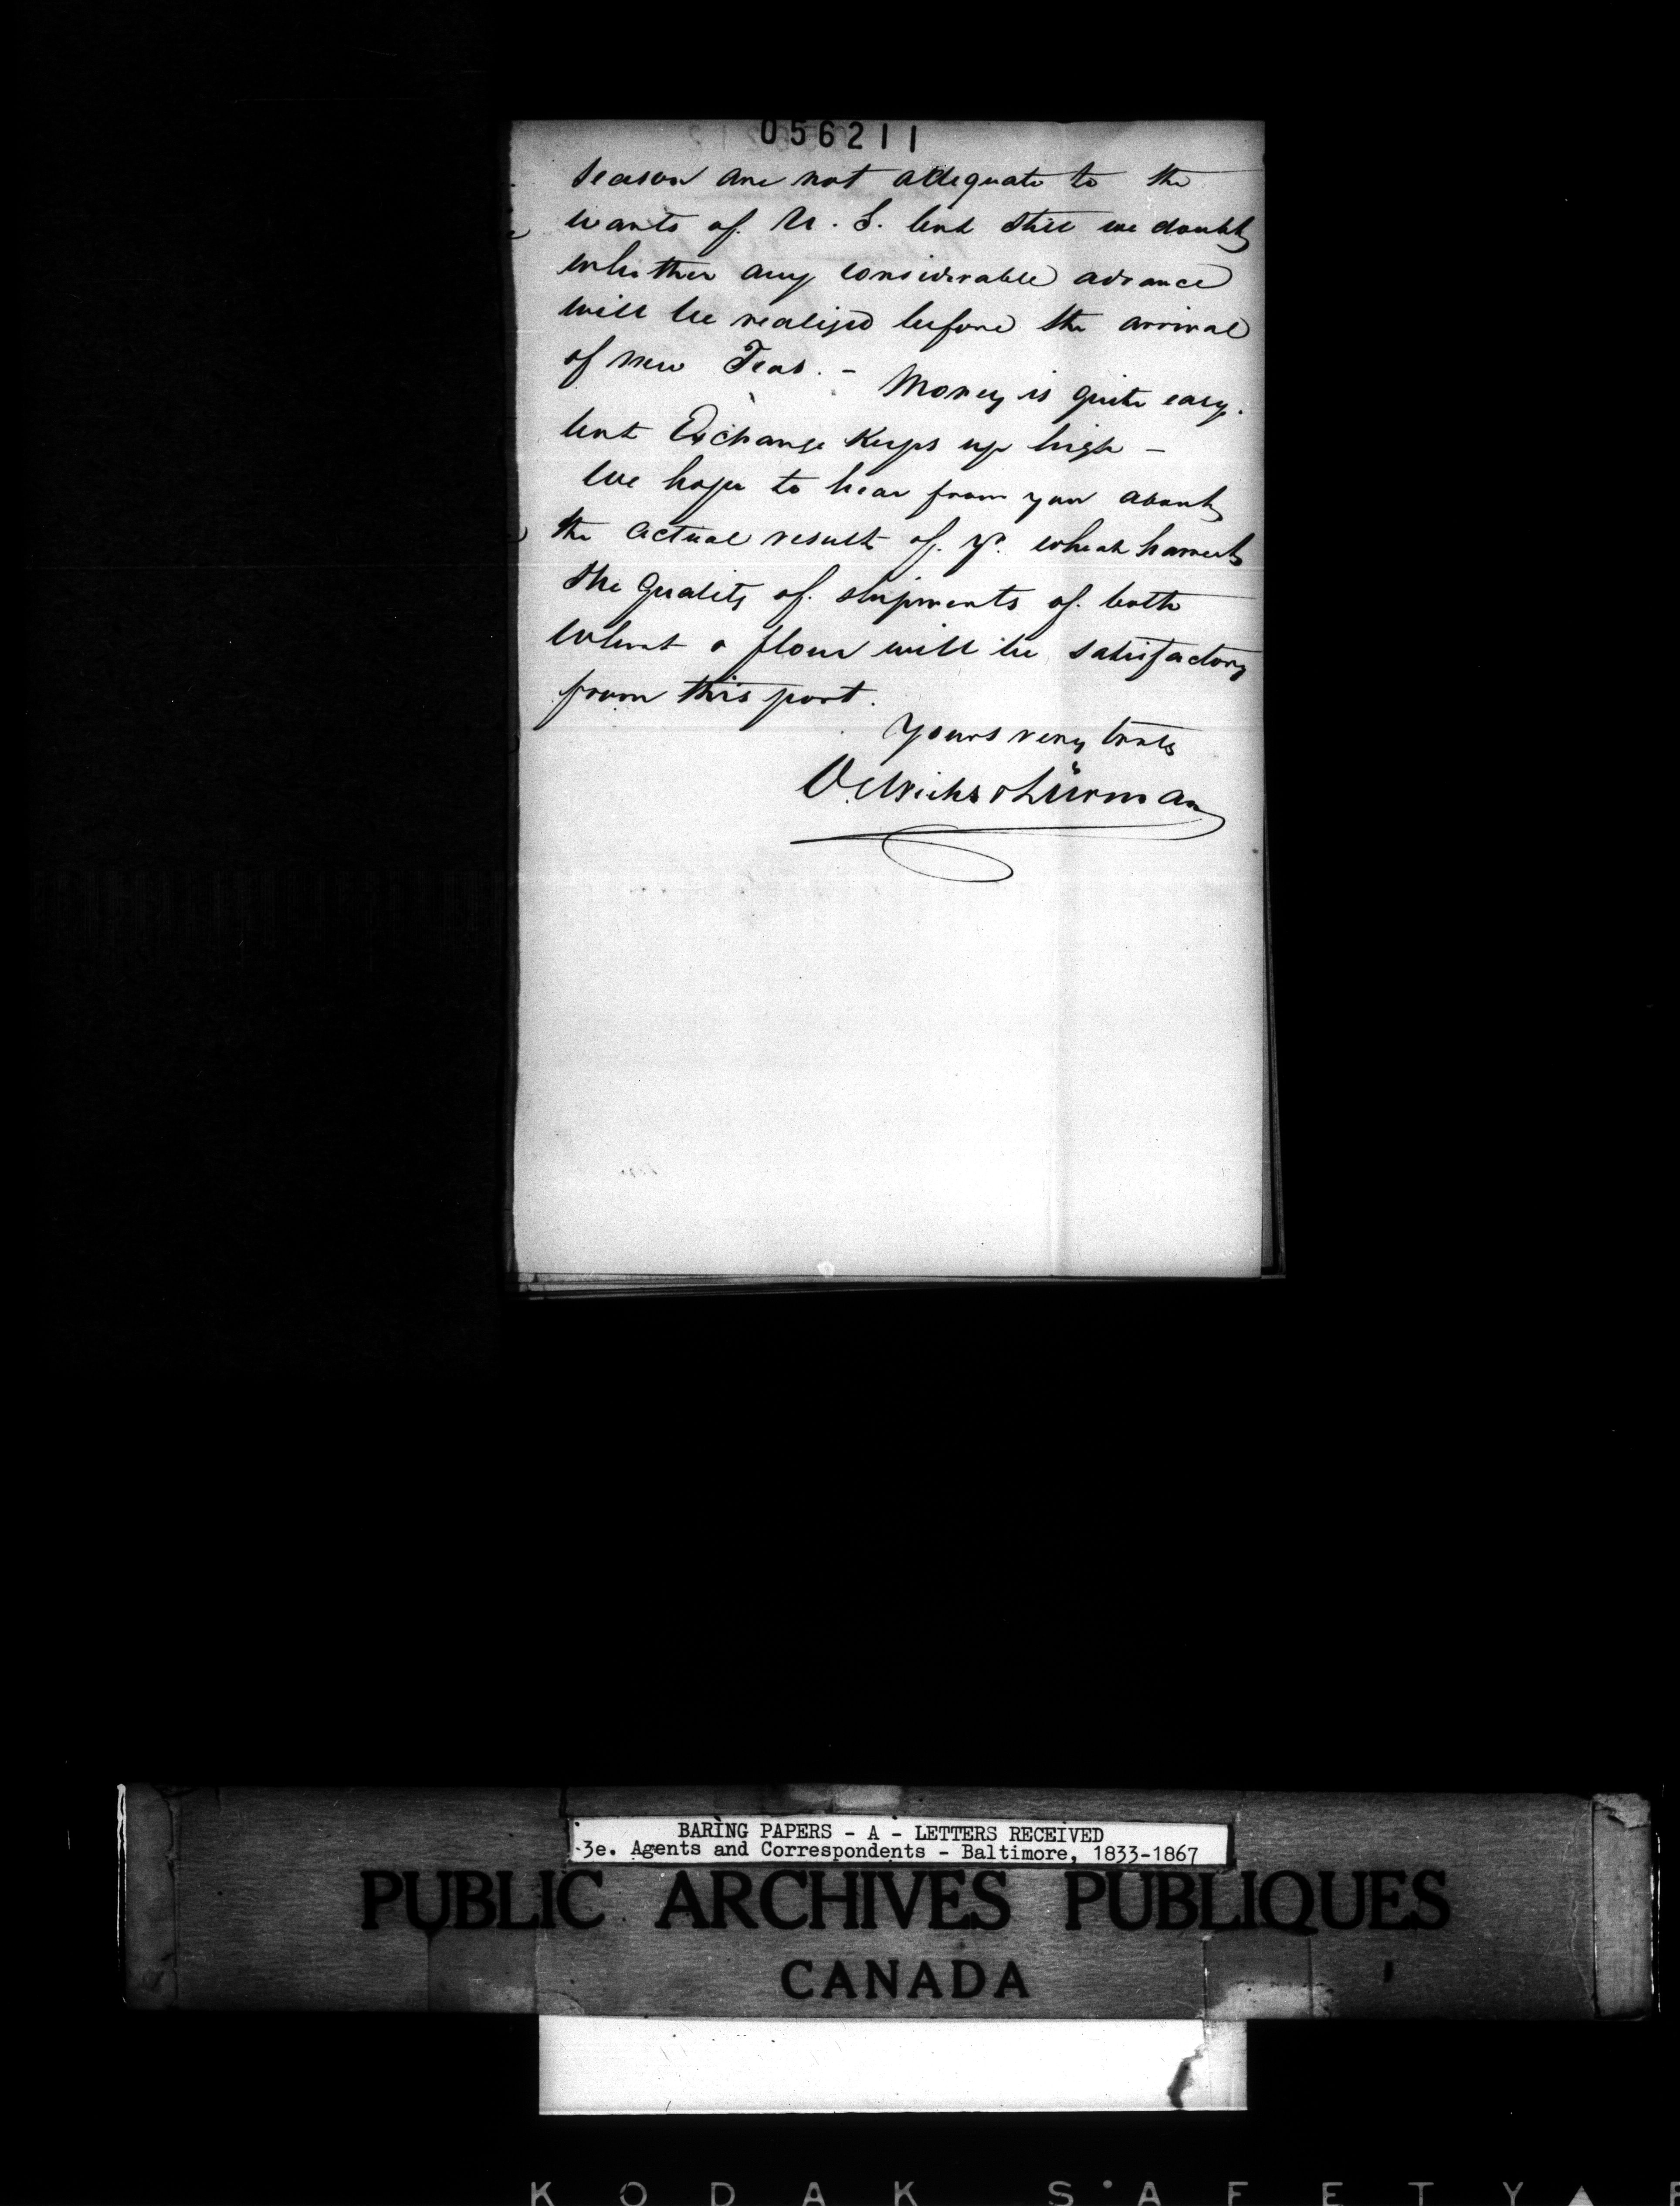 056211
season are not adequate to the
wants of U. S. but still we doubt
whether any considerable advance
will be realized before the arrival
of new Teas. - Money is quite easy.
but Exchange keeps up high -
We hope to hear from you about
the actual result of yr. wheat harvest
the quality of shipments of both
wheat & flour will be satisfactory
from this port.
Yours very truly
Oelrichs & Lürman
BARING PAPERS - A - LETTERS RECEIVED
3e. Agents and Correspondents - Baltimore, 1833-1867
PUBLIC ARCHIVES PUBLIQUES
CANADA
KODAK SAFETY